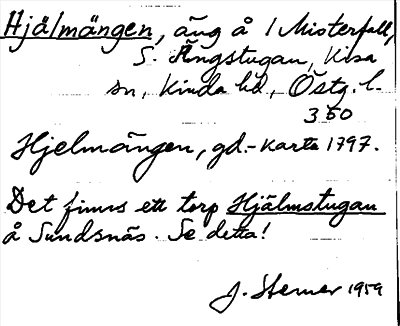 Hjälmängen, äng å 1 Misterfall,
S. Ängstugan, Kisa
sn, Kinda hd, Östg. l.
350
Hjelmängen, gd.-karta 1797.
Det finns ett torp Hjälmstugan
å Sundsnäs. Se detta!
J. Sterner 1959